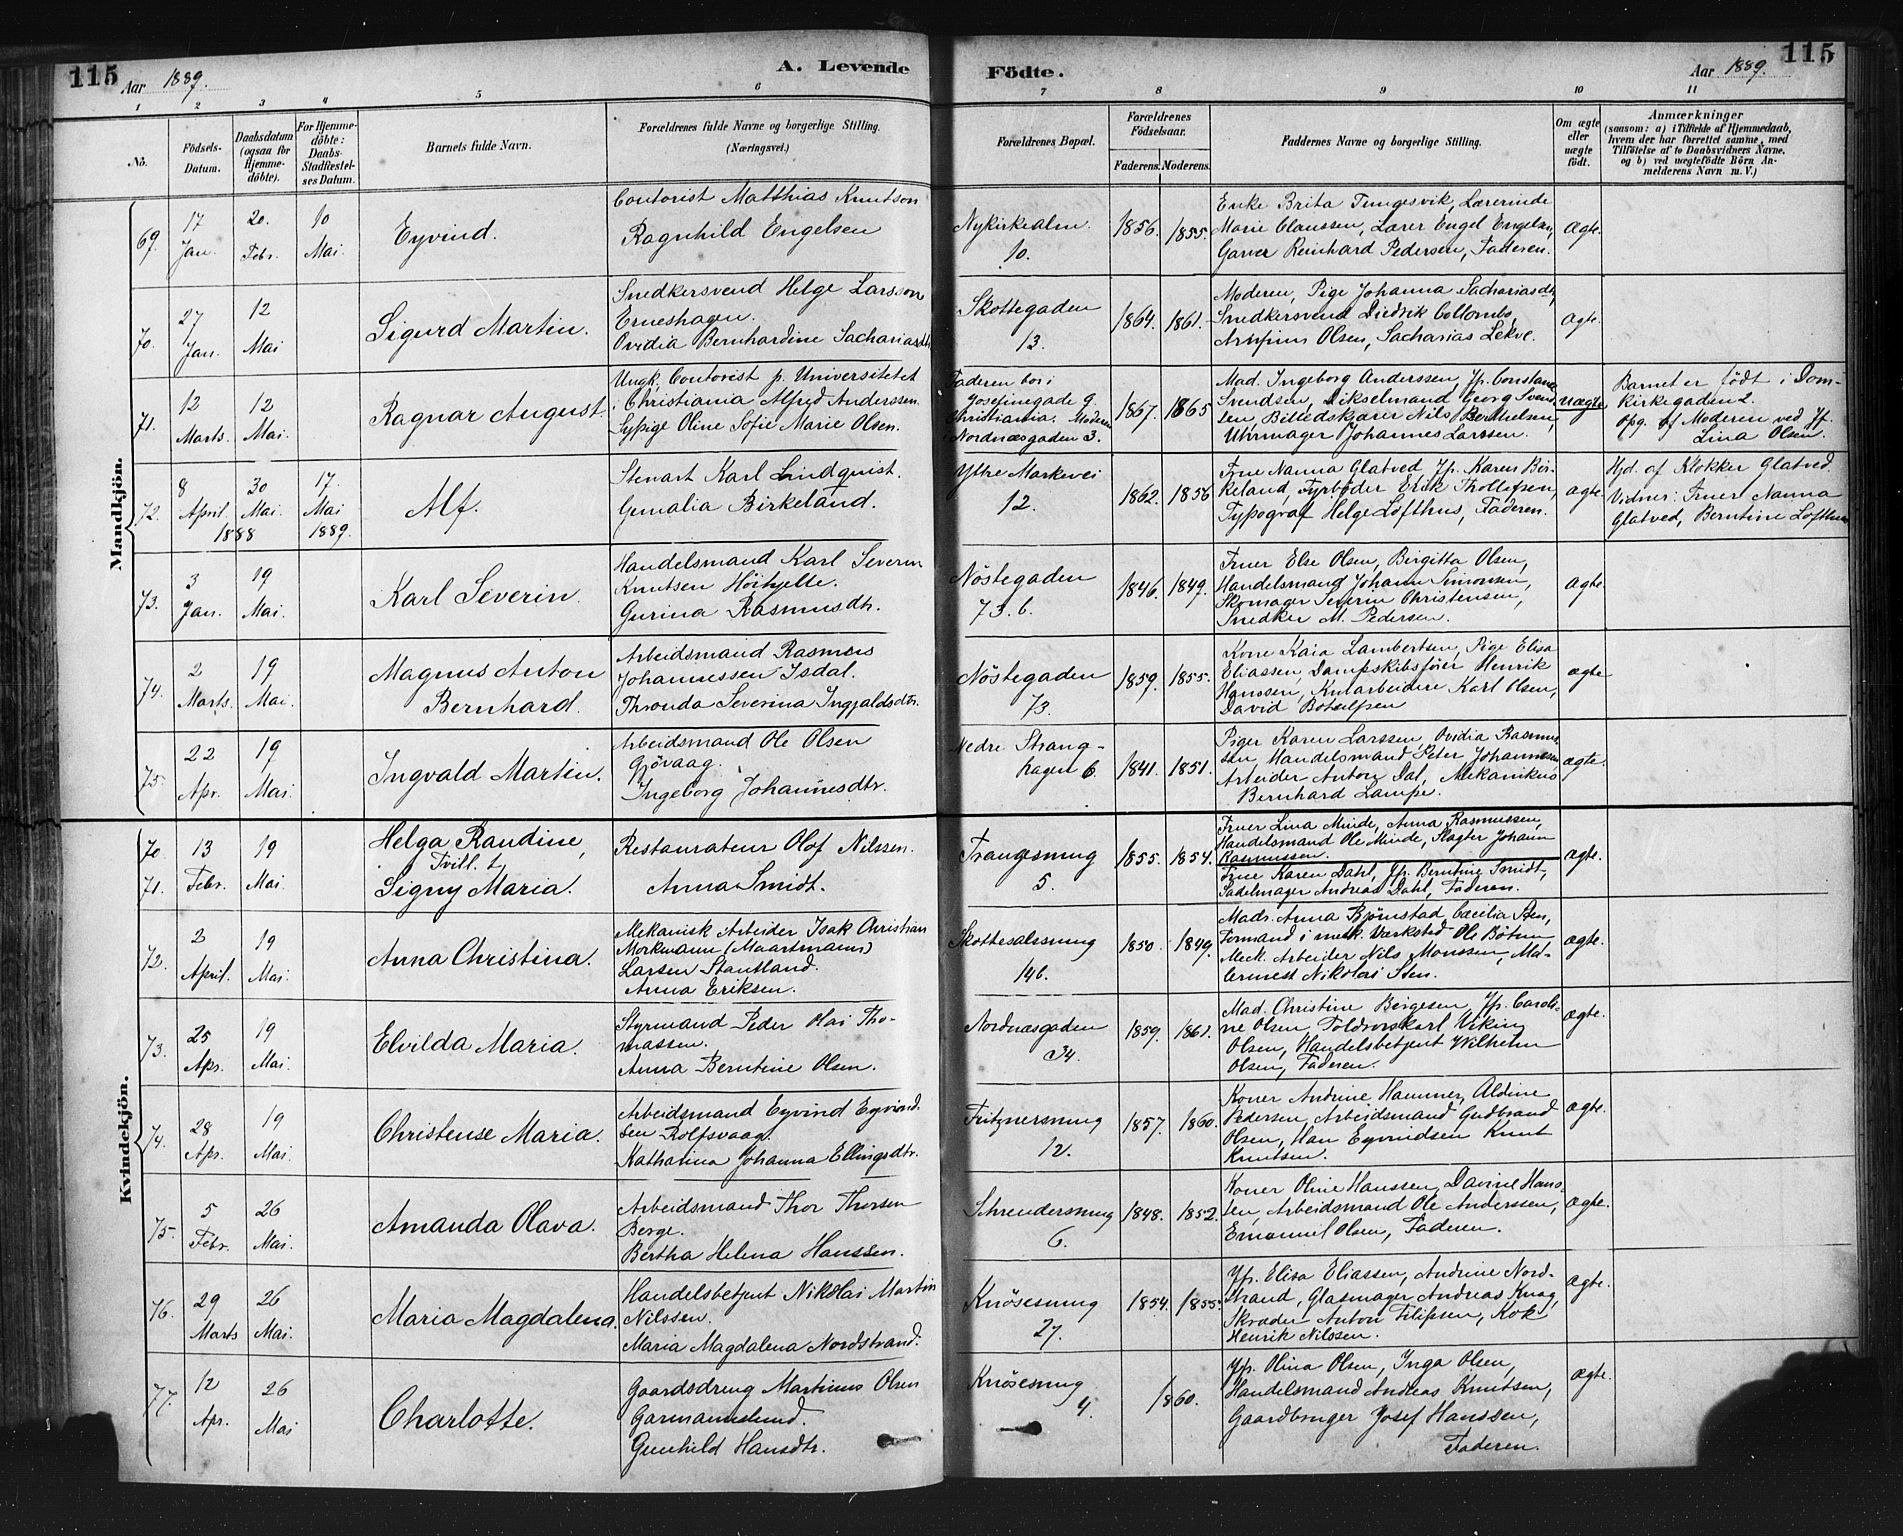 115
Aar 1889.
A. Levende
Födte.
Aar 1889.
115
1 2 3 4 5 6 7 8 9 10 11
No.
Födsels-
Datum.
Daabsdatum
(ogsaa for
Hjemme-
döbte).
For Hjemme-
döbte:
Daabs-
Stadfæstel-
ses Datum.
Barnets fulde Navn.
Forældrenes fulde Navne og borgerlige Stilling.
(Næringsvei.)
Forældrenes Bopæl.
Forældrenes
Födselsaar.
Faderens. Moderens.
Faddernes Navne og borgerlige Stilling.
Om ægte
eller
uægte
födt.
Anmærkninger
(saasom: a) i Tilfælde af Hjemmedaab,
hvem der har forrettet samme, med
Tilföielse af to Daabsvidners Navne,
og b) ved uægtefödte Börn An-
melderens Navn m. V.)
Mandkjön.
69.
17
Jan.
20.
Febr.
10
Mai.
Eyvind.
Contorist Matthias Knutson
Ragnhild Engelsen
Nykirkealm.
10.
1856. 1855.
Enke Brita Tungesvik, Lærerinde
Marie Claussen, Lærer Engel Engelsen,
Garver Reinhard Pedersen, Faderen.
Ægte.
70.
27
Jan.
12
Mai
Sigurd Martin.
Snedkersvend Helge Larsson
Erneshagen.
Ovidia Bernhardine Sachariasdtr
Skottegaden
13.
1864. 1861.
Moderen, Pige Johanna Sachariasdtr,
Snedkersvend Diedrik Collombs,
Olsen, Sacharias Lekve.
Ægte.
71.
12
Marts.
12
Mai.
Ragnar August.
Ungk. Contorist p. Universitetet
i Christiania Alfred Anderssen.
Sypige Oline Sofie Marie Olsen.
Faderen bor i
Josefinegade 9.
Christiania. Moderen
Nordnæsgaden 3.
1867. 1865
Mad. Ingeborg Anderssen, Jfr. Constance
Svendsen, Dikselmand Georg Svend-
sen, Billedskjærer Nils Berthelsen,
Uhrmager Johannes Larssen.
uægte
Barnet er födt i Dom-
kirkegaden 2.
Opg. af Moderen ved Jf.
Lina Olsen.
72.
8
April.
1888
30
Mai.
17.
Mai
1889.
Alf.
Stenart Karl Lindquist.
Gemalia Birkeland.
Ytre Markevei
12.
1862. 1856
Frue Nanna Glatved, Jfr. Karen Bir-
keland, Fyrböder Erik Thollefsen,
Typograf Helge Lofthus, Faderen.
Ægte.
Hjd. af Klokker Glatved.
Vidner: Fruer Nanna
Glatved, Berntine Lofthus
73.
3
Jan.
19
Mai.
Karl Severin.
Handelsmand Karl Severin
Knutsen Höihjelle.
Gurina Rasmusdtr.
Nöstegaden
73. b.
1846. 1849.
Fruer Else Olsen, Birgitta Olsen,
Handelsmand Johann Simonsen,
Skomager Severin Christensen,
Snedker M. Pedersen.
Ægte.
74.
2
Marts.
19
Mai.
Magnus Anton
Bernhard.
Arbeidsmand Rasmus
Johannessen Isdal.
Thronda Severina Ingjaldsdtr.
Nöstegaden
73.
1859. 1855.
Kone Kaia Lambertsen, Pige Elisa
Eliassen, Dampskibsförer Henrik
Hanssen, Kularbeidere Karl Olsen,
David Botulfsen
ægte
75.
22
Apr.
19
Mai.
Ingvald Martin.
Arbeidsmand Ole Olsen
Gjövaag.
Ingeborg Johannesdtr.
Nedre Strang-
hagen 6.
1841. 1851.
Piger Karen Larssen, Ovidia Rasmus-
sen, Handelsmand Peter Johannessen
Arbeider Anton Dal, Mekanikus
Bernhard Lampe.
ægte.
Kvindekjön.
70.
71.
13
Febr.
19
Mai.
Helga Randine,
Tvill.
Signy Maria.
Restaurateur Olof Nilssen.
Anna Smidt.
Trangesmug
5.
1855. 1854.
Fruer Lina Minde, Anna Rasmussen,
Handelsmand Ole Minde, Slagter Johann
Rasmussen.
Frue Karen Dahl, Jfr. Berntine Smidt,
Sadelmager Andreas Dahl, Faderen.
ægte.
72.
2
April.
19
Mai.
Anna Christina.
Mekanisk Arbeider Isak Christian
Morkmann (Maartmann)
Larsen Stantland.
Anna Eriksen.
Skottesalssmug
14b.
1850. 1849.
Mads. Anna Björnstad, Cæcilia Sten,
Formand i mek. Værksted Ole Bötun
Meck. Arbeider Nils Monssen, Ma-
lermest Nikolai Sten.
ægte.
73.
25
Apr.
19
Mai.
Elvilda Maria.
Styrmand Peder Olai Tho-
massen.
Anna Berntine Olsen.
Nordnæsgaden
34.
1859. 1861.
Mad. Christine Börgesen, Jfr. Caroli-
ne Olsen, Toldrorskarl Viking
Olsen, Handelsbetjent Wilhelm
Olsen, Faderen.
ægte.
74.
28
Apr.
19
Mai.
Christense Maria.
Arbeidsmand Eyvind Eyvind-
sen Rolfsvaag.
Kathatina Johanna Ellingsdtr.
Fritznersmug
12.
1857. 1860.
Koner Andrine Hammer, Aldine
Pedersen, Arbeidsmand Gudbrand
Olsen, Han Eyvindsen Knut
Knutsen.
ægte.
75.
5
Febr.
26
Mai.
Amanda Olava.
Arbeidsmand Thor Thorsen
Berge.
Bertha Helena Hanssen.
Schrendersmug
6.
1848. 1852.
Koner Oline Hanssen, Davine Hans-
sen, Arbeidsmand Ole Anderssen,
Emanuel Olsen, Faderen.
ægte.
76.
29
Marts
26
Mai.
Maria Magdalena.
Handelsbetjent Nikolai Martin
Nilssen.
Maria Magdalena Nordstrand.
Knösesmug
27.
1854. 1855.
Jfr. Elisa Eliassen, Andrine Nord-
strand, Glasmager Andreas Knag,
Skræder Anton Filipsen, Kok
Henrik Nilssen.
ægte.
77.
12
Apr.
26
Mai
Charlotte.
Gaardsdreng Martinus Olsen
Garmannslund.
Gunhild Hansdtr.
Knösesmug
4.
1860.
Jfr. Olina Olsen, Inga Olsen,
Handelsmand Andreas Knutsen,
Gaardbruger Josef Hanssen,
Faderen.
ægte.